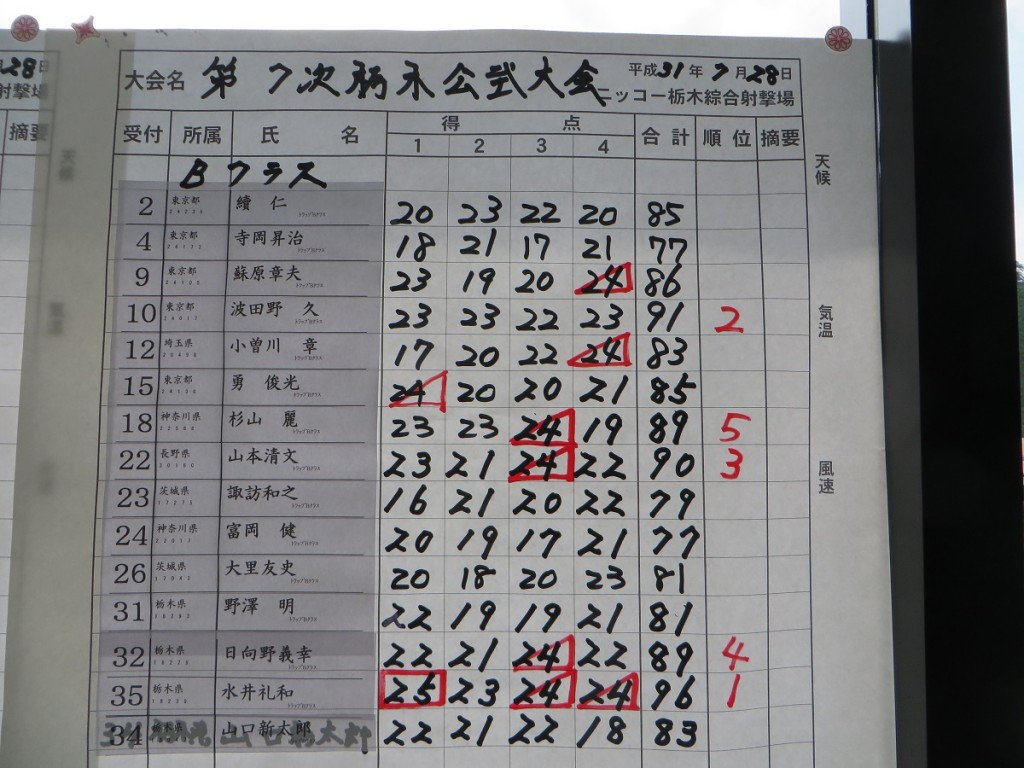 大会名 第7次栃木公式大会 平成31年7月28日
ニッコー栃木綜合射撃場
受付 所属 氏名 得点 合計 順位 摘要
1 2 3 4
Bクラス
2 東京都 續 仁 20 23 22 20 85
4 東京都 寺岡昇治 18 21 17 21 77
9 東京都 蘇原章夫 23 19 20 24 86
10 東京都 波田野 久 23 23 22 23 91 2
12 埼玉県 小曽川 章 17 20 22 24 83
15 東京都 勇 俊光 24 20 20 21 85
18 神奈川県 杉山 麗 23 23 24 19 89 5
22 長野県 山本清文 23 21 24 22 90 3
23 茨城県 諏訪和之 16 21 20 22 79
24 神奈川県 富岡 健 20 19 17 21 77
26 茨城県 大里友史 20 18 20 23 81
31 栃木県 野澤 明 22 19 19 21 81
32 栃木県 日向野義幸 22 21 24 22 89 4
35 栃木県 水井礼和 25 23 24 24 96 1
34 栃木県 山口新太郎 22 21 22 18 83
天候
気温
風速
28日
射撃場
摘要
天候